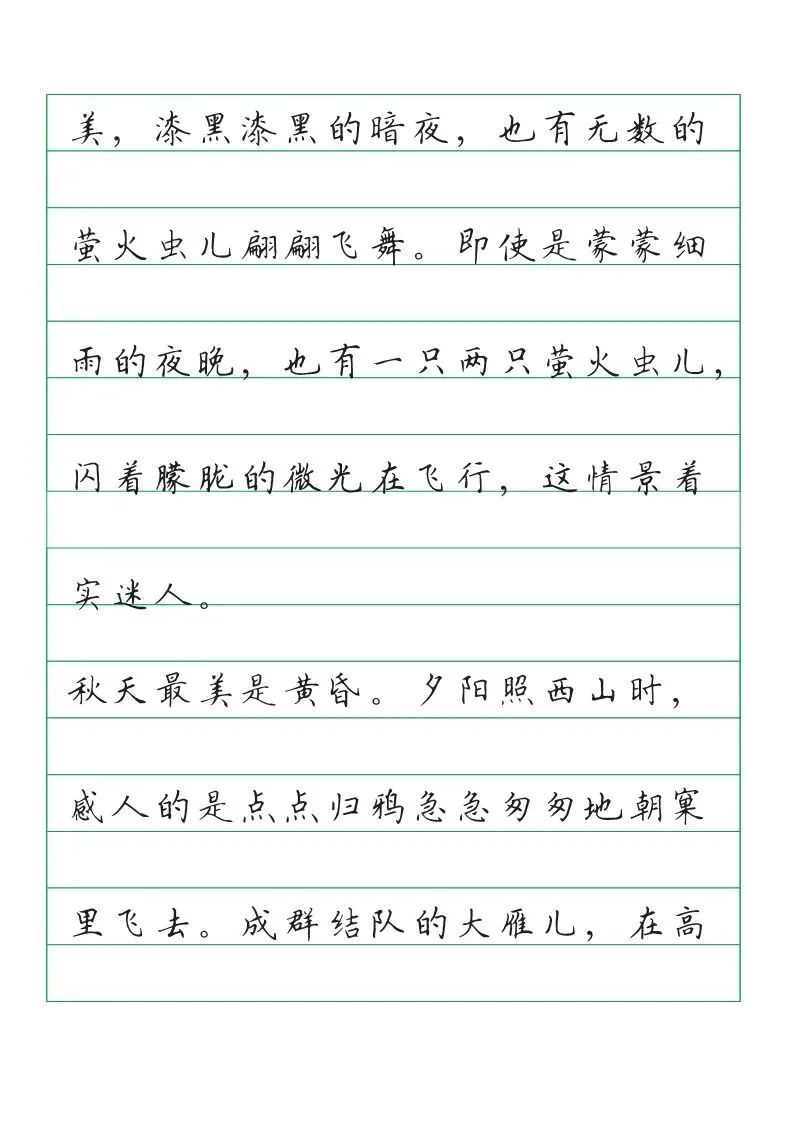 美，漆黑漆黑的暗夜，也有无数的
萤火虫儿翩翩飞舞。即使是蒙蒙细
雨的夜晚，也有一只两只萤火虫儿，
闪着朦胧的微光在飞行，这情景着
实迷人。
秋天最美是黄昏。夕阳照西山时，
感人的是点点归鸦急急匆匆地朝窠
里飞去。成群结队的大雁儿，在高